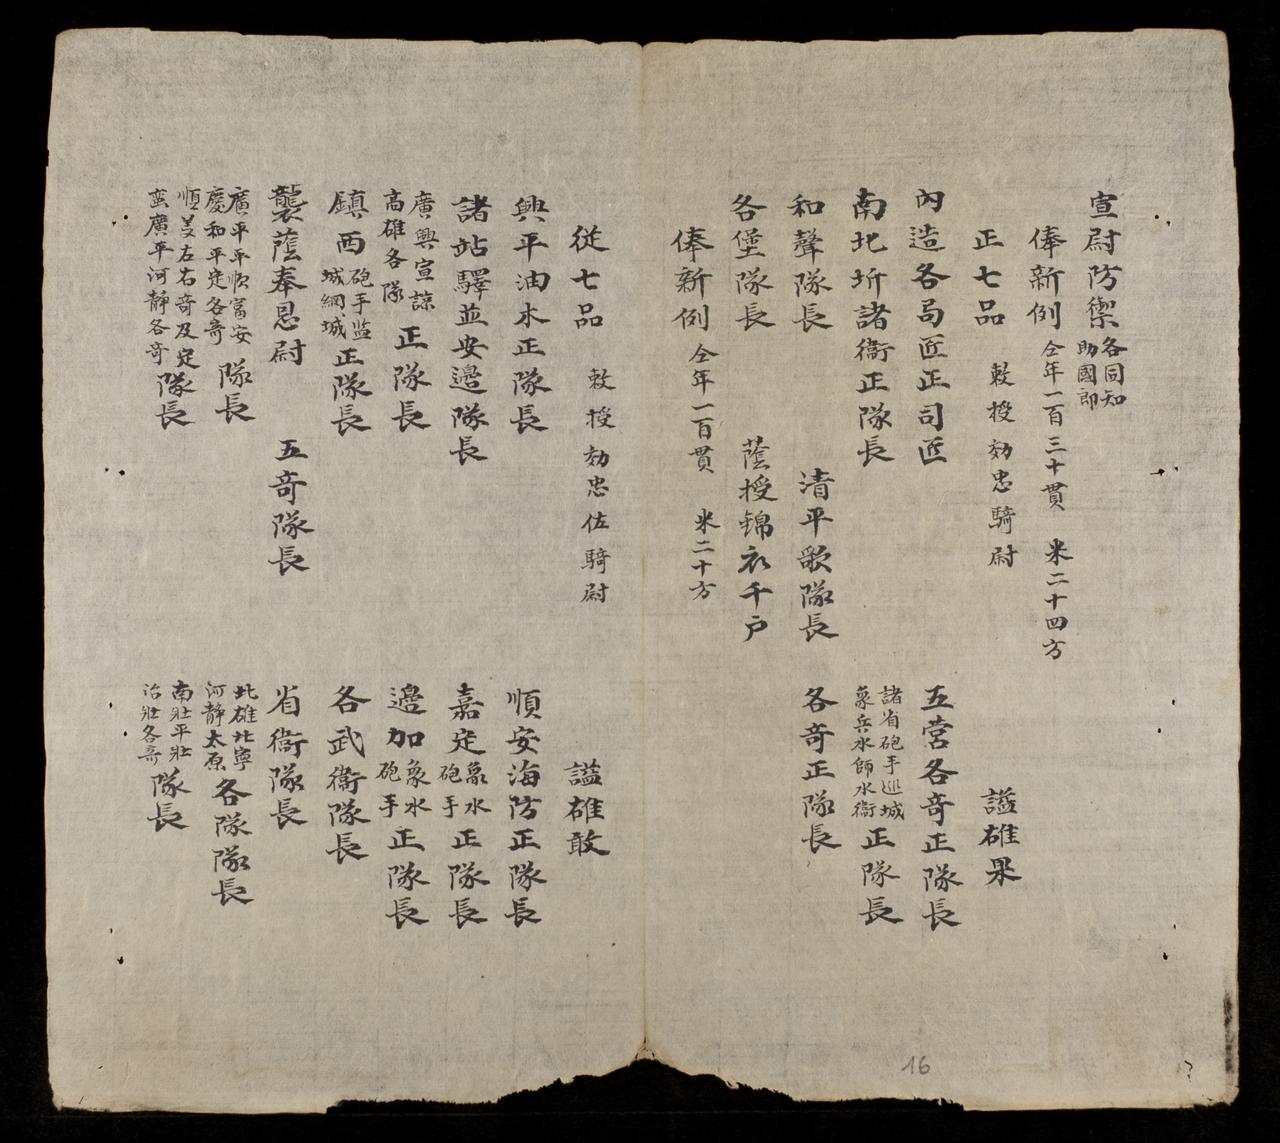 宣尉防禦 各同知 助國郎
俸新例 仝年一百三十貫 米二十四方
正七品 敕授効忠騎尉 謚雄果
內造各局匠正司匠 五营各竒正隊長
南北圻諸衞正隊長 諸省砲手巡城 象兵水師水衞 正隊長
和聲隊長 清平歌隊長 各竒正隊長
各堡隊長 蔭授錦衣千户
俸新例 仝年一百貫 米二十方
從七品 敕授効忠佐騎尉 謚雄敢
興平油木正隊長 順安海防正隊長
諸站驛並安邊隊長 嘉定 象水 砲手 正隊長
廣興宣諒 高雄各隊 正隊長 邊加 象水 砲手 正隊長
鎮西 砲手监城 網城 正隊長 各武衞隊長
襲蔭奉恩尉 五竒隊長 省衞隊長
廣平平順富安 慶和平定各竒 隊長 北雄北寧 河静太原 各隊隊長
恆美左右竒及定 蛮廣平河静各竒 隊長 南壯平壯 治壯各竒 隊長
16